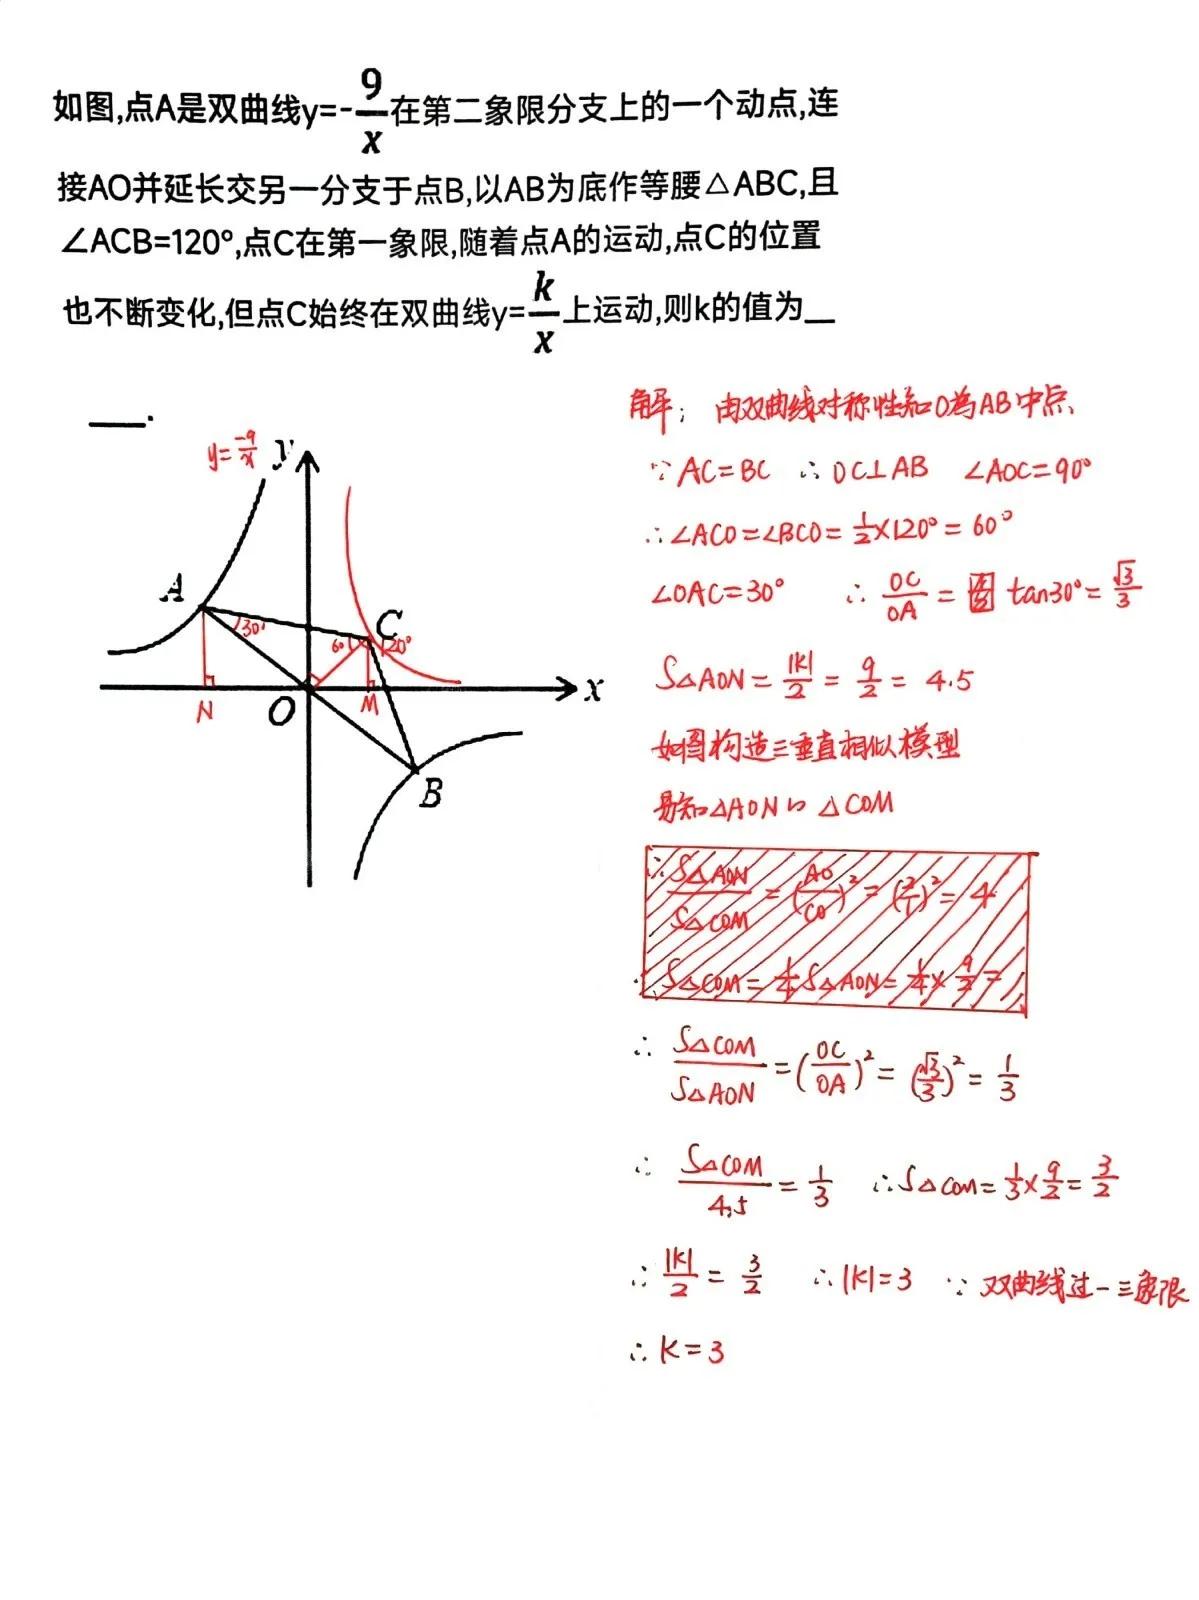 如图,点A是双曲线y=-9/x在第二象限分支上的一个动点,连
接AO并延长交另一分支于点B,以AB为底作等腰△ABC,且
∠ACB=120°,点C在第一象限,随着点A的运动,点C的位置
也不断变化,但点C始终在双曲线y=k/x上运动,则k的值为__
___.
y=-9/x
y
A
30°
60°
C
120°
N
O
M
x
B
解: 由双曲线对称性知O為AB中点
∵AC=BC ∴OC⊥AB ∠AOC=90°
∴∠ACO=∠BCO=1/2×120°=60°
∠OAC=30° ∴ OC/OA = tan30°=√3/3
S△AON=|k|/2=9/2=4.5
如图构造三垂直相似模型
易知△AON∽△COM
∵ S△AON/S△COM=(AO/CO)²=(2/1)²=4
∴ S△COM=1/4 S△AON=1/4×9/2=
∴ S△COM/S△AON=(OC/OA)²=(√3/3)²=1/3
∴ S△COM/4.5=1/3 ∴S△COM=1/3×9/2=3/2
∴ |K|/2=3/2 ∴|K|=3 ∵双曲线过一三象限
∴K=3